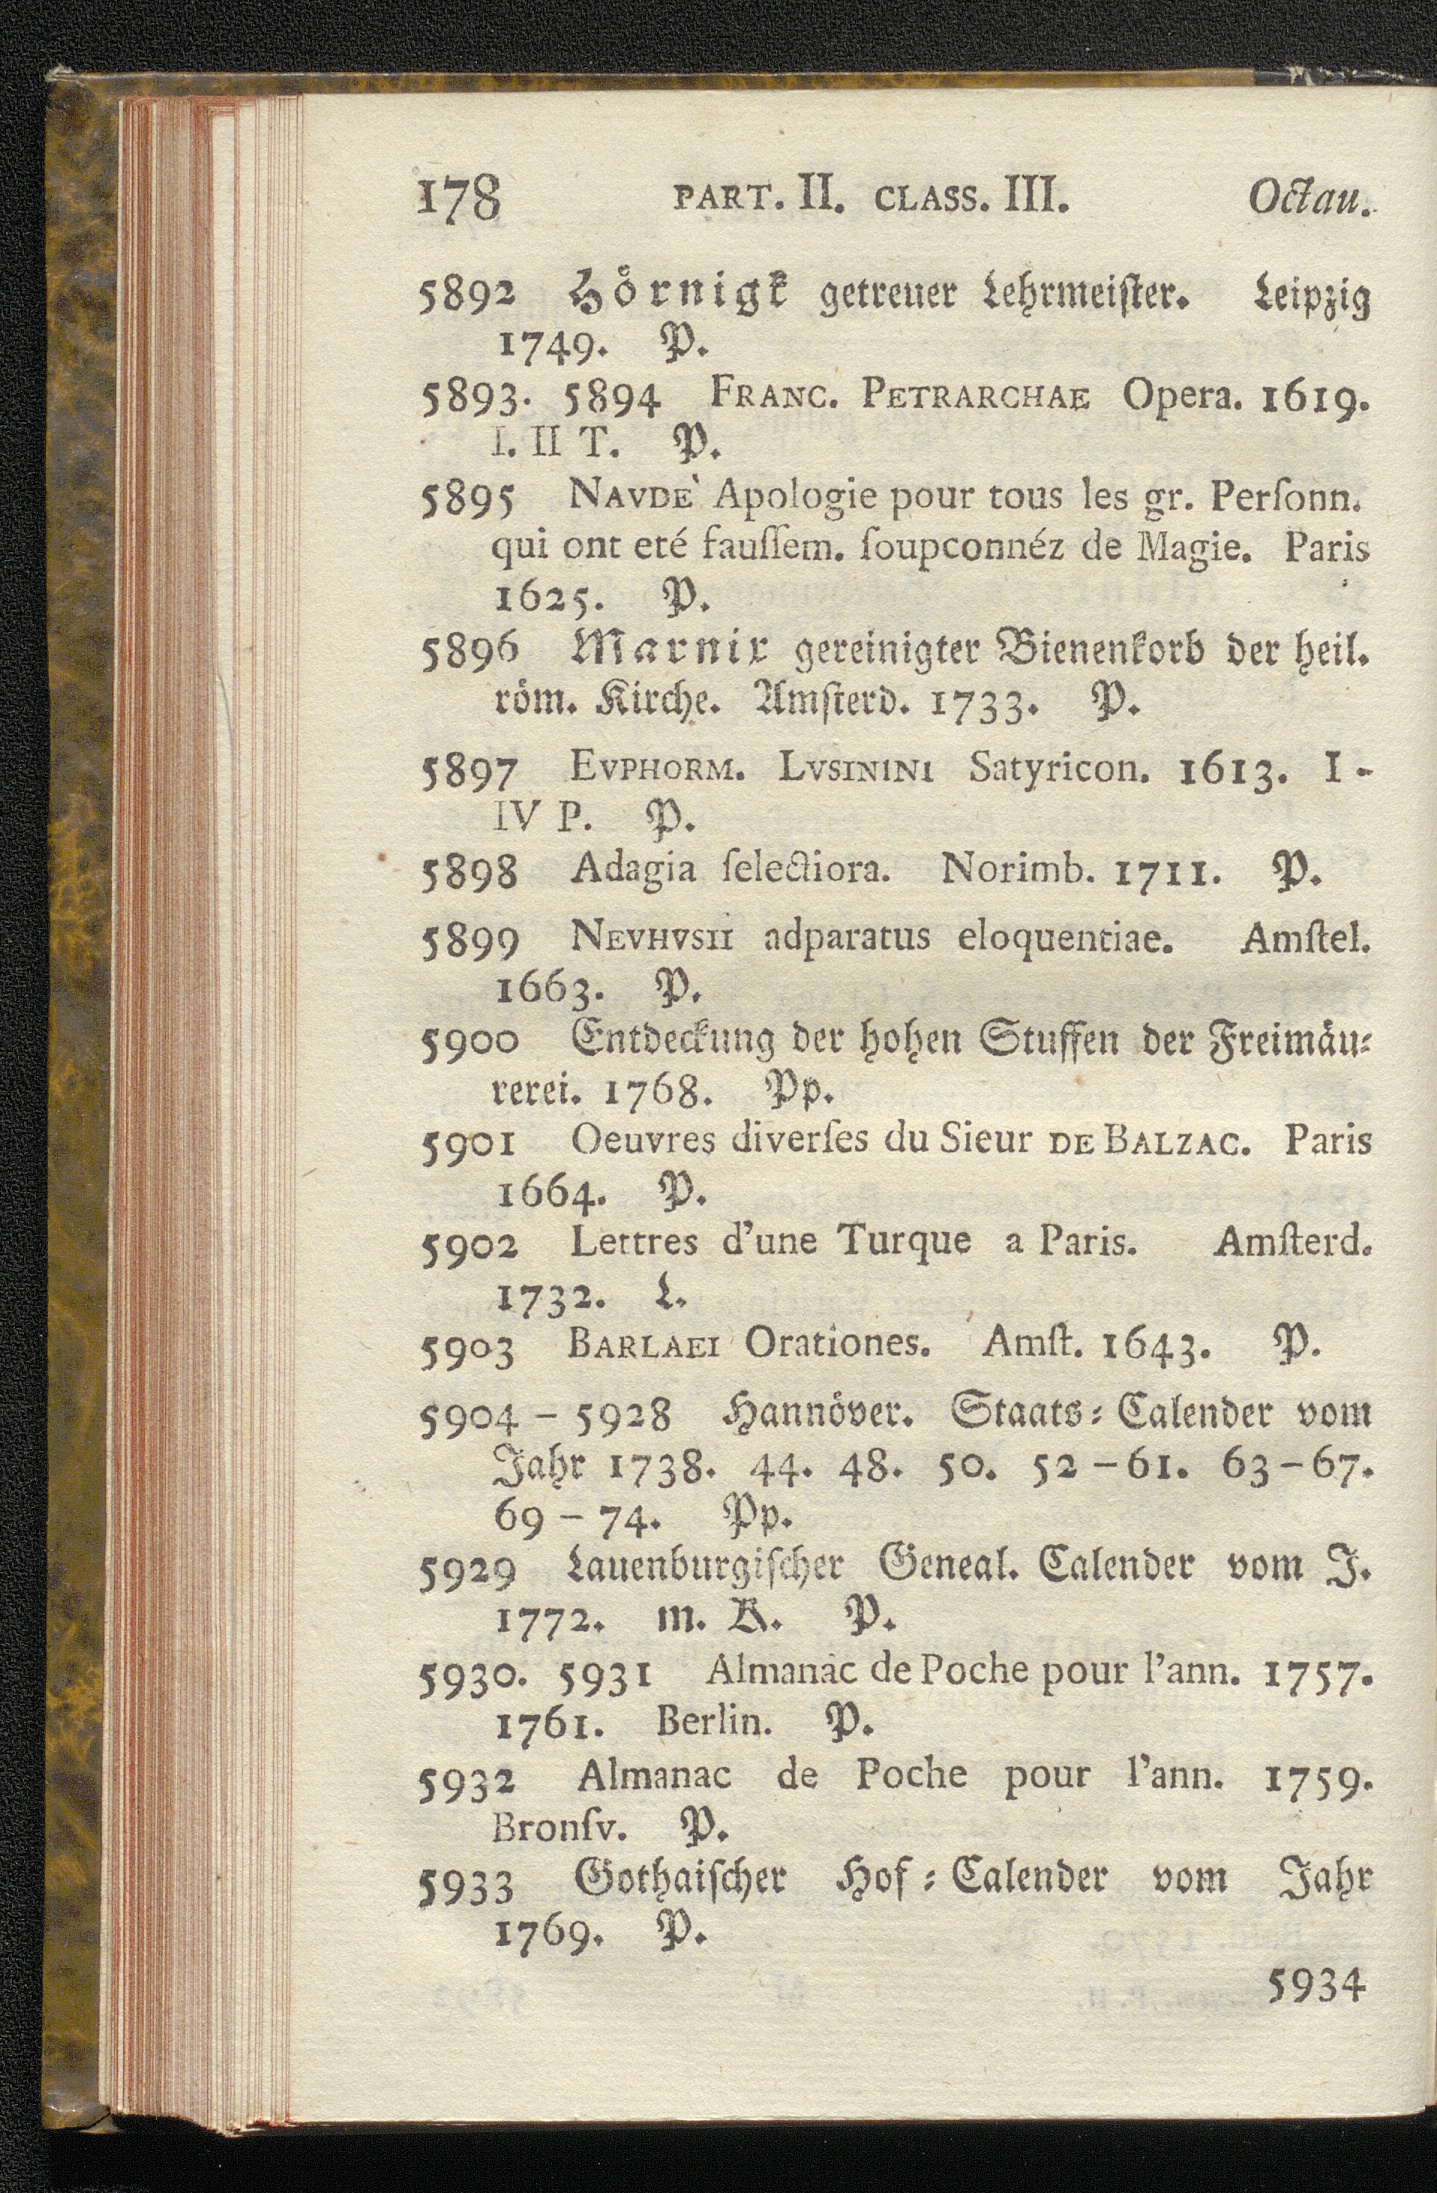 178 PART. II. CLASS. III. Octau.
5892 Hörnigk getreuer Lehrmeiſter. Leipzig
1749. P.
5893. 5894 FRANC. PETRARCHAE Opera. 1619.
I. II T. P.
5895 NAVDE` Apologie pour tous les gr. Perſonn.
qui ont eté fauſſem. ſoupconnéz de Magie. Paris
1625. P.
5896 Marnix gereinigter Bienenkorb der heil.
röm. Kirche. Amſterd. 1733. P.
5897 EVPHORM. LVSININI Satyricon. 1613. I -
IV P. P.
5898 Adagia ſelectiora. Norimb. 1711. P.
5899 NEVHVSII adparatus eloquentiae. Amſtel.
1663. P.
5900 Entdeckung der hohen Stuffen der Freimäu⸗
rerei. 1768. Pp.
5901 Oeuvres diverſes du Sieur DE BALZAC. Paris
1664. P.
5902 Lettres d'une Turque a Paris. Amſterd.
1732. L.
5903 BARLAEI Orationes. Amſt. 1643. P.
5904 – 5928 Hannöver. Staats⸗Calender vom
Jahr 1738. 44. 48. 50. 52 – 61. 63 – 67.
69 – 74. Pp.
5929 Lauenburgiſcher Geneal. Calender vom J.
1772. m. K. P.
5930. 5931 Almanac de Poche pour l'ann. 1757.
1761. Berlin. P.
5932 Almanac de Poche pour l'ann. 1759.
Bronſv. P.
5933 Gothaiſcher Hof⸗Calender vom Jahr
1769. P.
5934